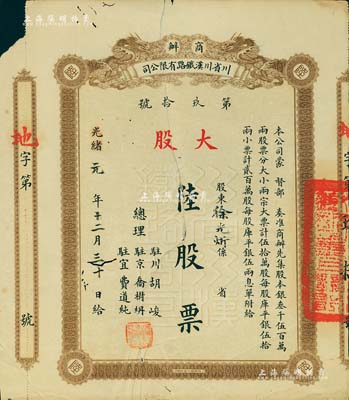 商辦
川省川漢鐵路有限公司
第玖拾號
大股
本公司蒙 督部 奏准商辦先集股本銀叁千伍百萬
兩股票分大小兩宗大票計伍拾萬股每股庫平銀伍拾
兩小票計貳百萬股每股庫平銀伍兩息單附給
股東徐 係 省 漢
陸股票
總理
駐川 胡峻
駐京 喬樹枬
駐宜 費道純
光緒 元 年十二月三十日給
地字第 號
地
字第